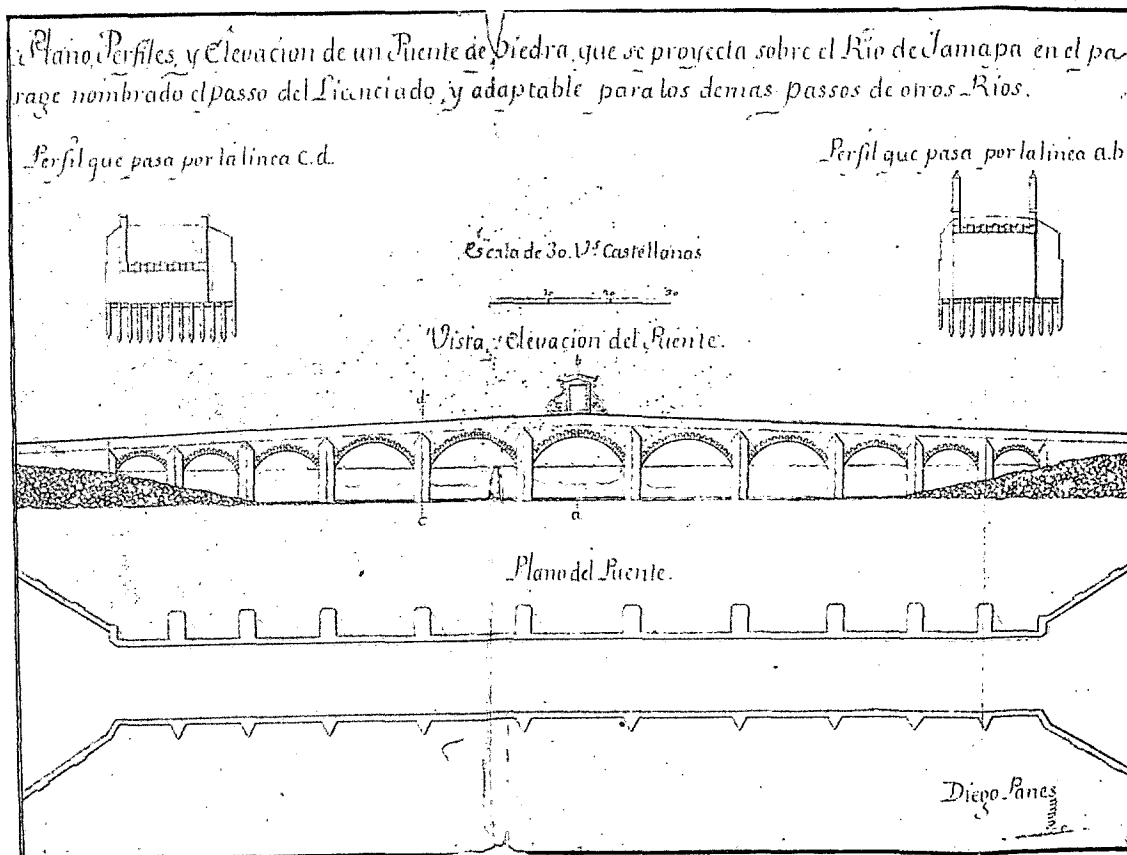 Plano, Perfiles, y Elevacion de un Puente de piedra, que se proyecta sobre el Rio de Jamapa en el pa-
rage nombrado el passo del Licenciado, y adaptable para los demas passos de otros Rios.
Perfil que pasa por la linea c.d.
Perfil que pasa por la linea a.b
Escala de 30. V.s Castellanas
10 20 30
Vista, y Elevacion del Puente.
b
d
c
a
Plano del Puente.
Diego Panes